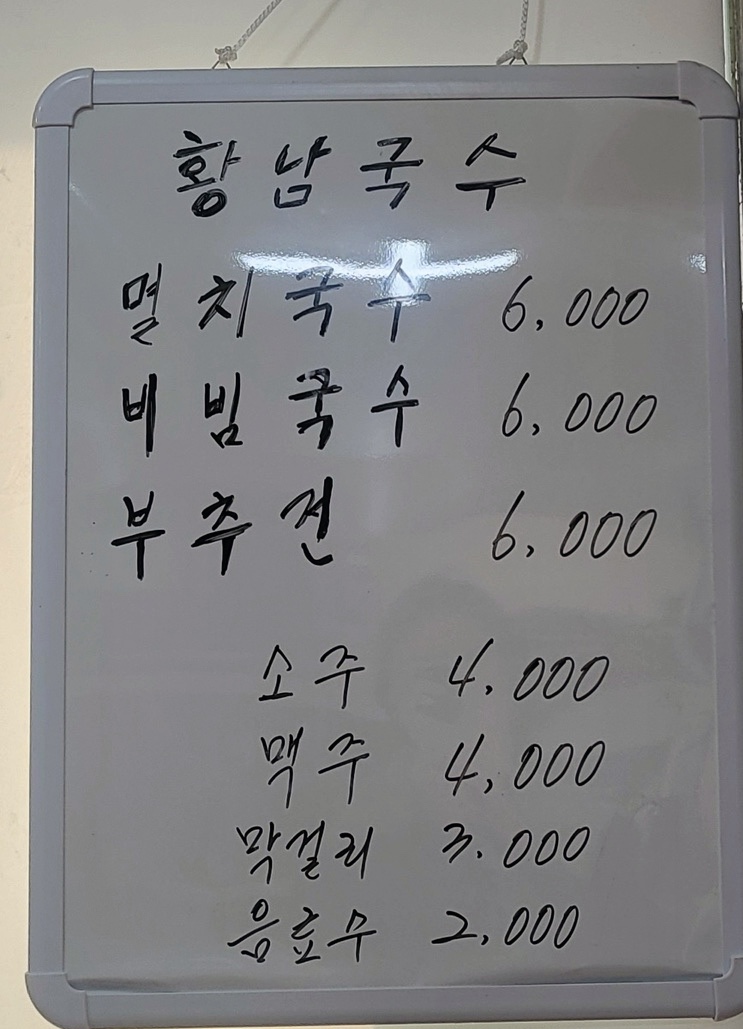 황남국수
멸치국수 6,000
비빔국수 6,000
부추전 6,000
소주 4,000
맥주 4,000
막걸리 3.000
음료수 2,000